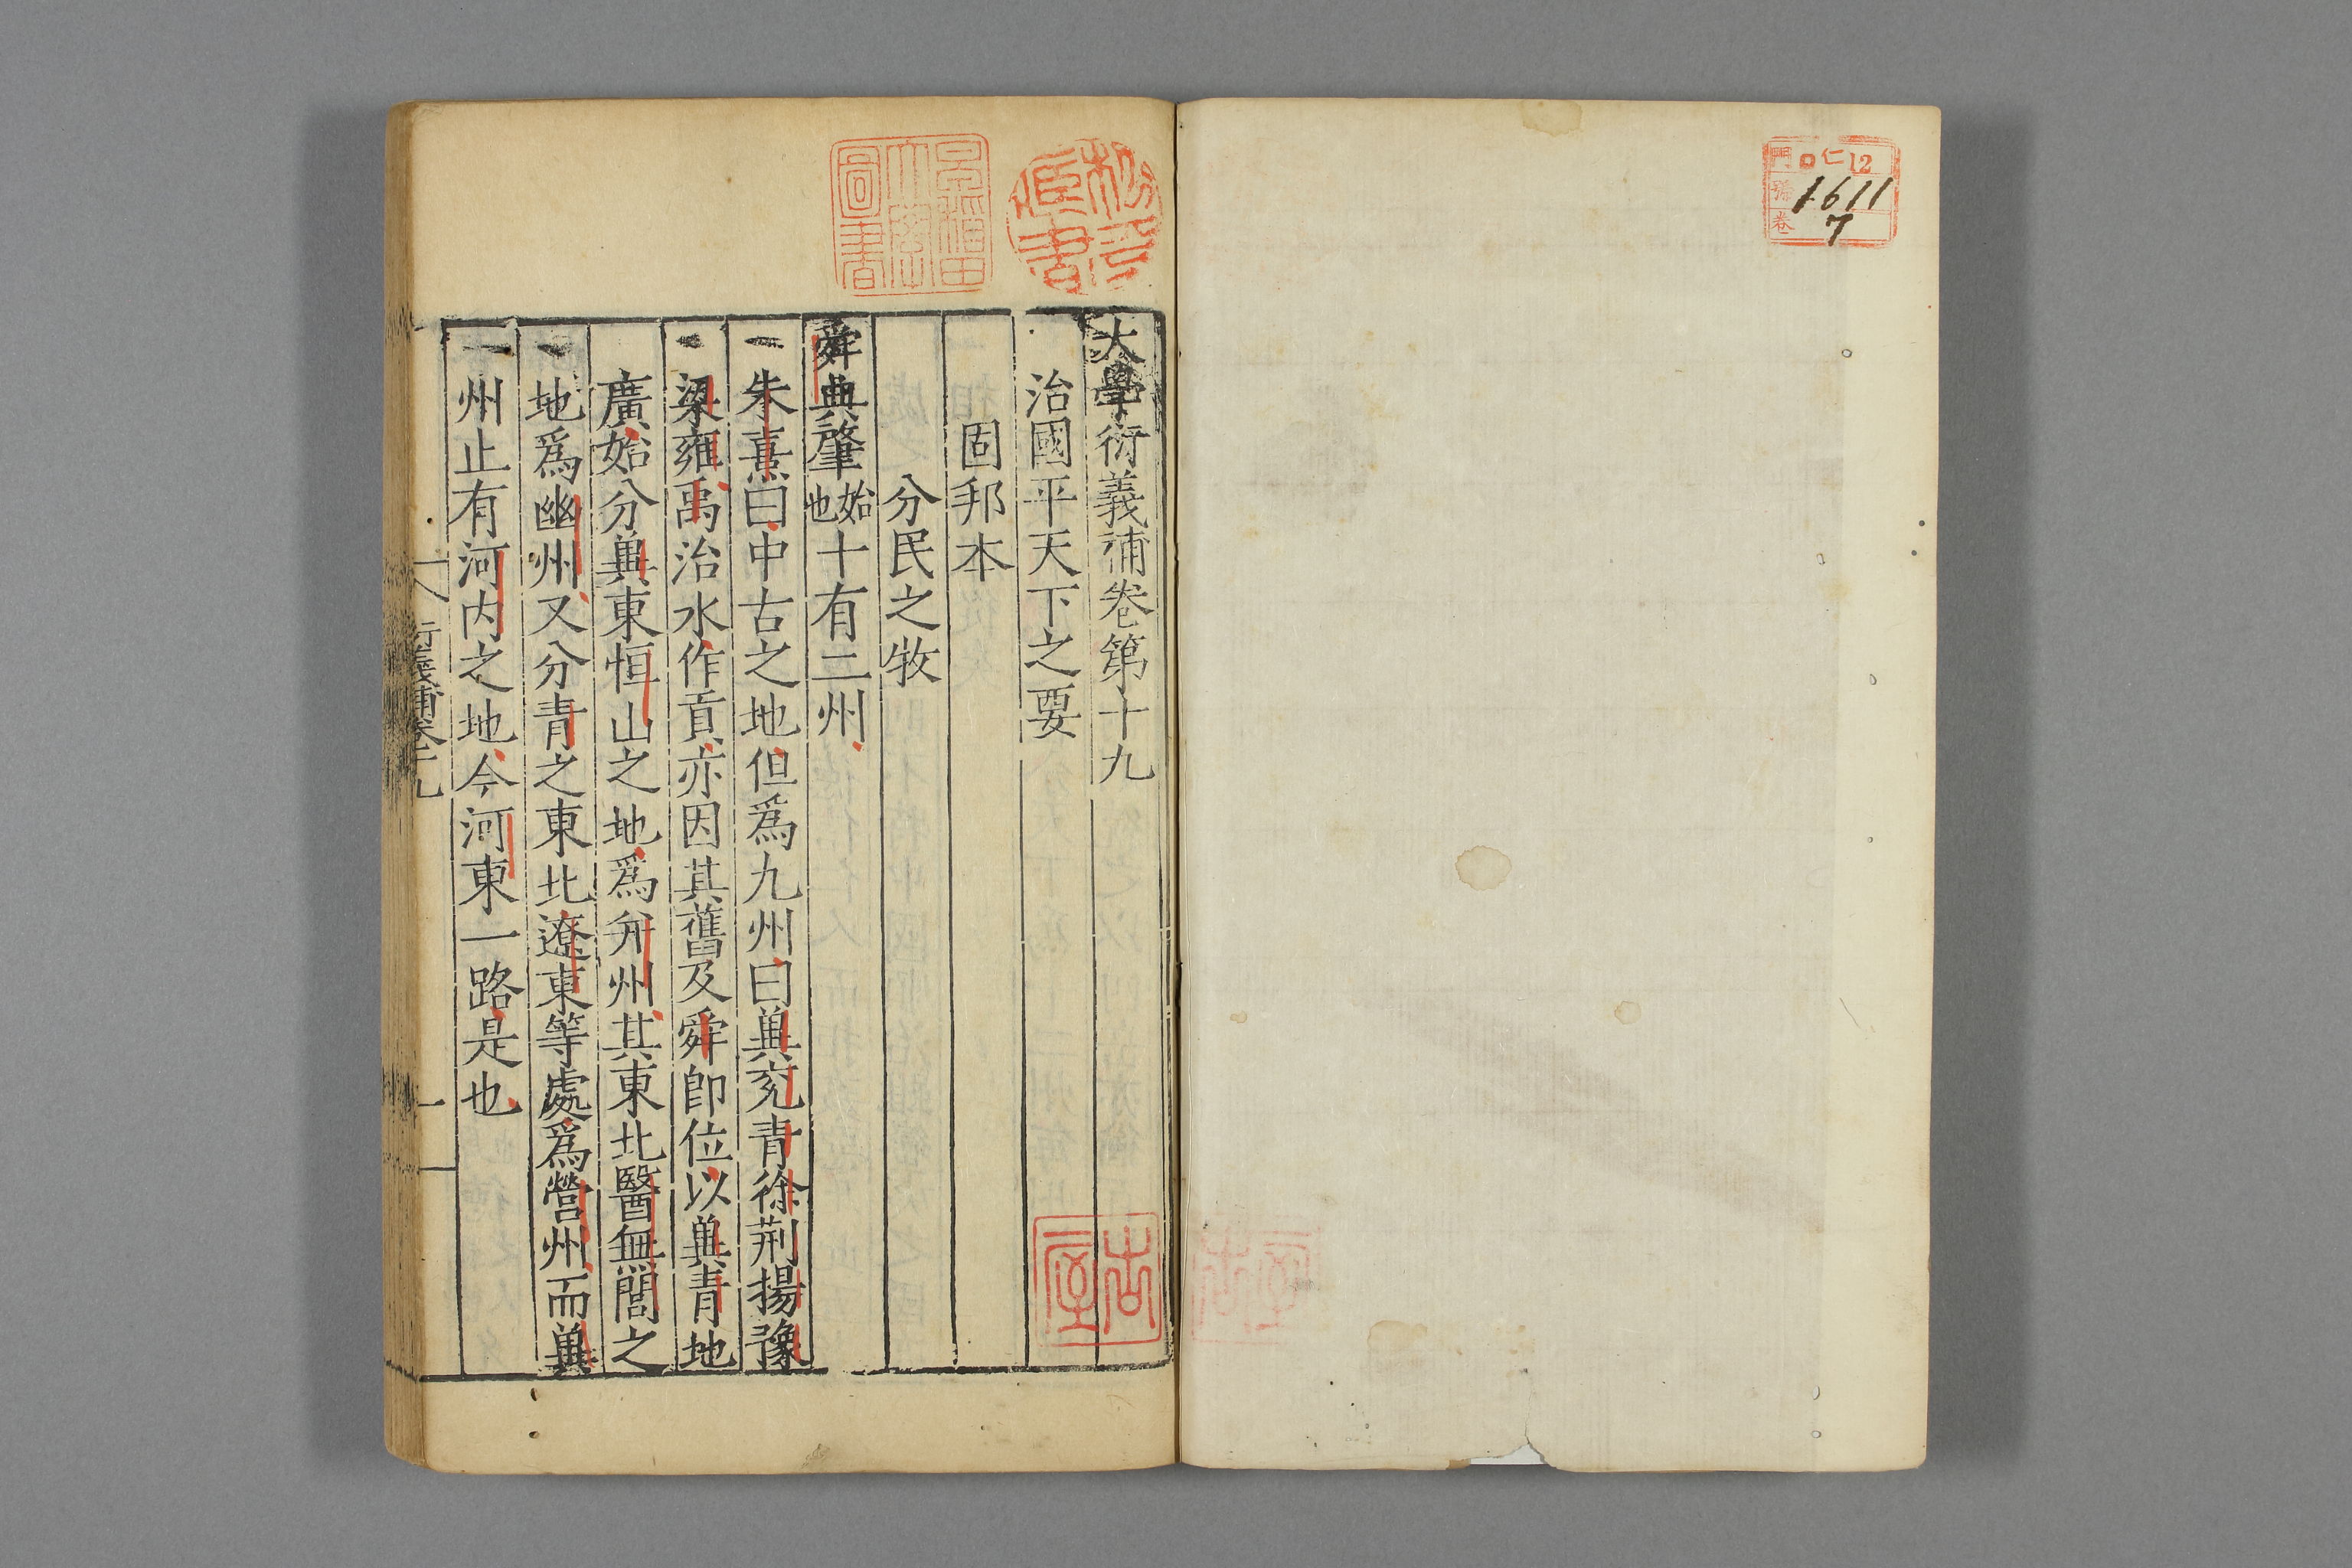 門 ロ仁 12
號 1611
卷 7
大學衍義補卷第十九
治國平天下之要
固邦本
分民之牧
舜典肇始也十有二州
朱熹曰中古之地但爲九州曰兾兖青徐荆揚豫
梁雍禹治水作貢亦因其舊及舜卽位以兾青地
廣始分兾東恒山之地爲并州其東北醫無閭之
地爲幽州又分青之東北遼東等處爲營州而兾
州止有河内之地今河東一路是也
衍義補卷十九
一
早稻田大學圖書